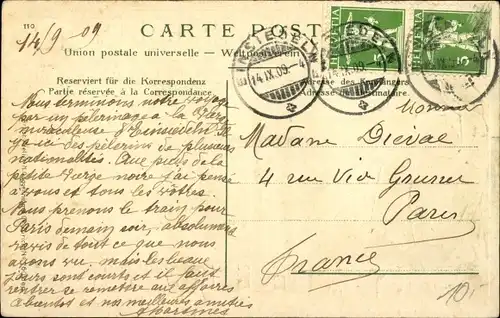 110
14/9 09
CARTE POSTALE
Union postale universelle — Weltpostverein
HELVETIA
HELVETIA
5
EINSIEDELN
14.IX.09.-4
EINSIEDELN
14.IX.09
Reserviert für die Korrespondenz
Partie réservée à la Correspondance
Adresse des Empfängers
Adresse du destinataire
Nous terminons notre voyage
par un pèlerinage à la Vierge
miraculeuse d'Einsiedeln. Il
y a ici des pèlerins de plusieurs
nationalités. Aux pieds de la
petite Vierge noire j'ai pensé
à vous et tous les vôtres
Nous prenons le train pour
Paris demain soir, absolument
ravis de tout ce que nous
avons vu. Mais les beaux
jours sont courts et il faut
rentrer se remettre aux affaires
à bientôt et nos meilleurs amitiés
Monsieur
Madame Dieval
4 rue
Paris
France
10.-